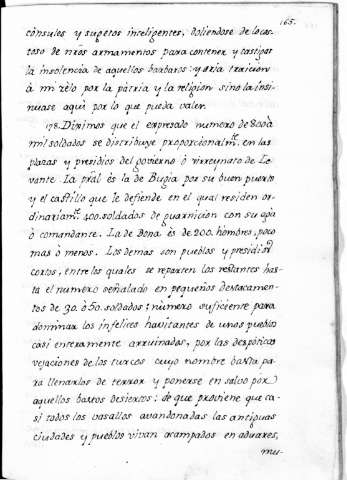 165.
cónsules y sugetos inteligentes, doliendose de lo cos-
toso de nrōs armamentos para contener y castigar
la insolencia de aquellos barbaros: y sria traicion
à mi zelo por la pátria y la religion si no la insi-
nuase aqui por lo que pueda valer.
178. Diximos que el expresado numero de
mil soldados se distribuye proporcionalm.te en las
plazas y presidios del govierno ò virreynato de Le-
vante. La prāl es la de Bugia por su buen puerto
y el castillo que le defiende en el qual residen or-
dinariam.te 400. soldados de guarnicion con su agà
ò comandante. La de Bona ès de 200. hombres, poco
mas ò menos. Los demas son pueblos y presidios
cortos, entre los quales se reparten los restantes has-
ta el numero señalado en pequeños destacamen-
tos de 30. ò 50. soldados; número suficiente para
dominar los infelices havitantes de unos pueblos
casi enteramente arruinados, por las despóticas
vejaciones de los turcos cuyo nombre basta pa-
ra llenarlos de terror y ponerse en salvo por
aquellos bastos desiertos: de que proviene que ca-
si todos los vasallos avandonadas las antiguas
ciudades y pueblos vivan acampados en aduares,
mu-